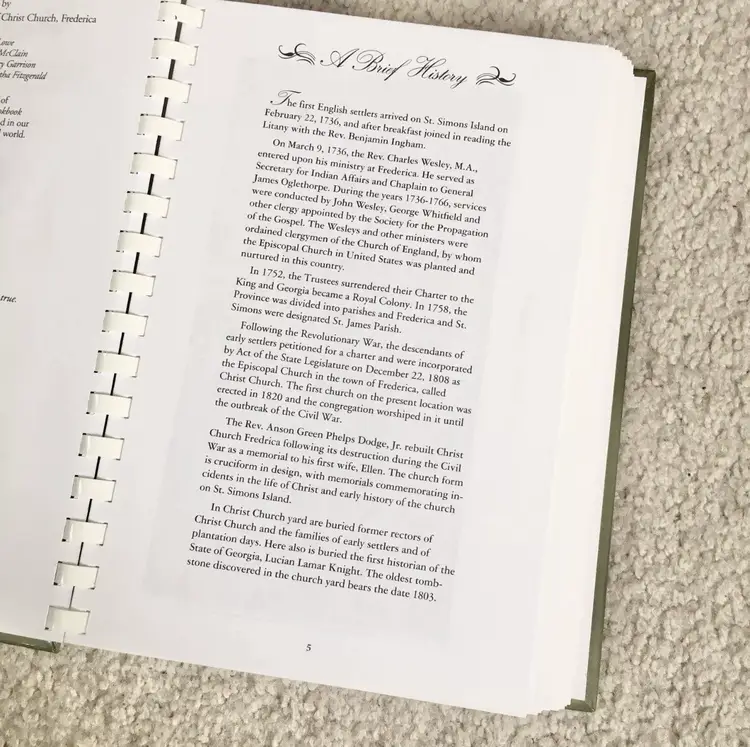 by
Christ Church, Frederica
McClain
Garrison
tha Fitzgerald
of
okbook
d in our
world.
true.
A Brief History
The first English settlers arrived on St. Simons Island on
February 22, 1736, and after breakfast joined in reading the
Litany with the Rev. Benjamin Ingham.
On March 9, 1736, the Rev. Charles Wesley, M.A.,
entered upon his ministry at Frederica. He served as
Secretary for Indian Affairs and Chaplain to General
James Oglethorpe. During the years 1736-1766, services
were conducted by John Wesley, George Whitfield and
other clergy appointed by the Society for the Propagation
of the Gospel. The Wesleys and other ministers were
ordained clergymen of the Church of England, by whom
the Episcopal Church in United States was planted and
nurtured in this country.
In 1752, the Trustees surrendered their Charter to the
King and Georgia became a Royal Colony. In 1758, the
Province was divided into parishes and Frederica and St.
Simons were designated St. James Parish.
Following the Revolutionary War, the descendants of
early settlers petitioned for a charter and were incorporated
by Act of the State Legislature on December 22, 1808 as
the Episcopal Church in the town of Frederica, called
Christ Church. The first church on the present location was
erected in 1820 and the congregation worshiped in it until
the outbreak of the Civil War.
The Rev. Anson Green Phelps Dodge, Jr. rebuilt Christ
Church Fredrica following its destruction during the Civil
War as a memorial to his first wife, Ellen. The church form
is cruciform in design, with memorials commemorating in-
cidents in the life of Christ and early history of the church
on St. Simons Island.
In Christ Church yard are buried former rectors of
Christ Church and the families of early settlers and of
plantation days. Here also is buried the first historian of the
State of Georgia, Lucian Lamar Knight. The oldest tomb-
stone discovered in the church yard bears the date 1803.
5